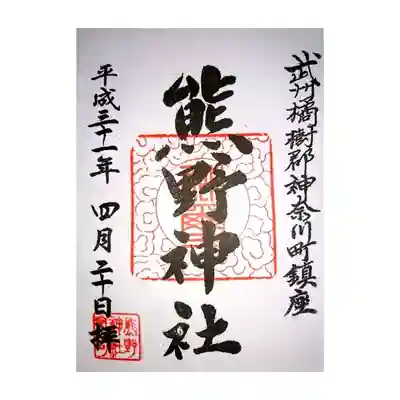 武州橘樹郡神奈川町鎮座
熊野神社
平成三十一年 四月二十日 拝